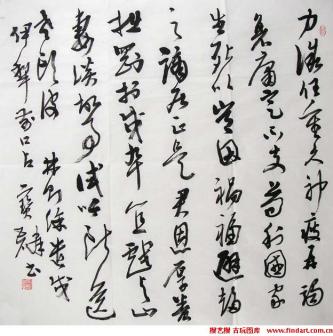 力微任重久神疲再竭
衰庸定不支苟利国家
生死以岂因祸福避趋
之谪居正是君恩厚养
拙刚于戍卒宜戏与山
妻谈故事试吟断送
老头皮 林则徐赴戍
伊犁 口占
书
搜艺搜 古玩图库
www.findart.com.cn